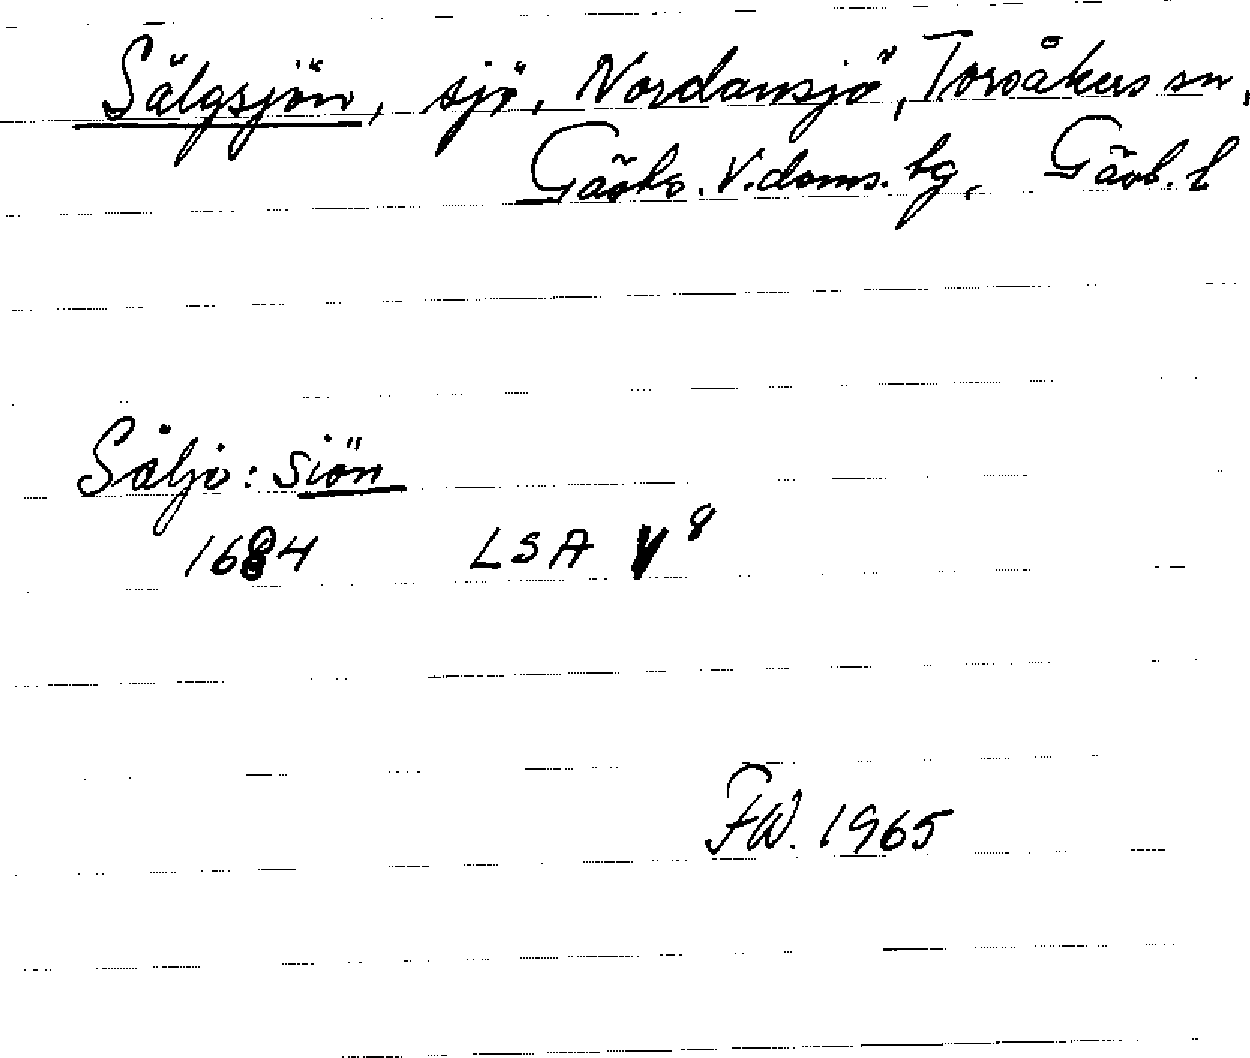 Sälgsjön, sjö, Nordansjö, Torsåkers sn,
Gästr. V. doms. tg, Gävl. l
Sälje: siön
1684 LSA V 8
FW. 1965